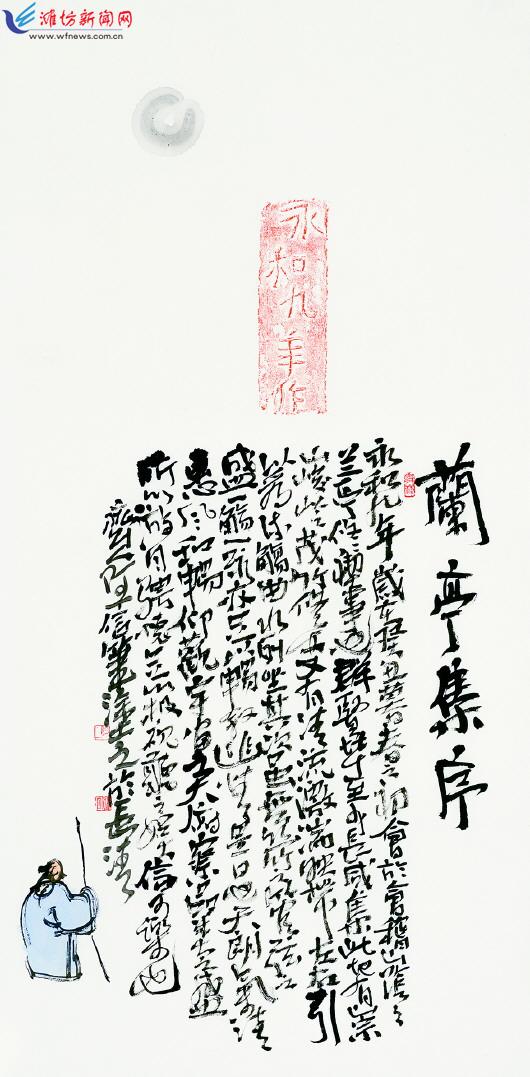 潍坊新闻网
www.wfnews.com.cn
永和九年作
蘭亭集序
永和九年歲在癸丑暮春之初會於會稽山陰之
蘭亭修禊事也群賢畢至少長咸集此地有崇
山峻岭茂林修竹又有清流激湍映帶左右引
以為流觴曲水列坐其次虽無絲竹管弦之
盛一觴一詠亦足以暢敘幽情是日也天朗氣清
惠风和暢仰觀宇宙之大俯察品類之盛
所以遊目騁懷足以極視聽之娛信可樂也
於長清